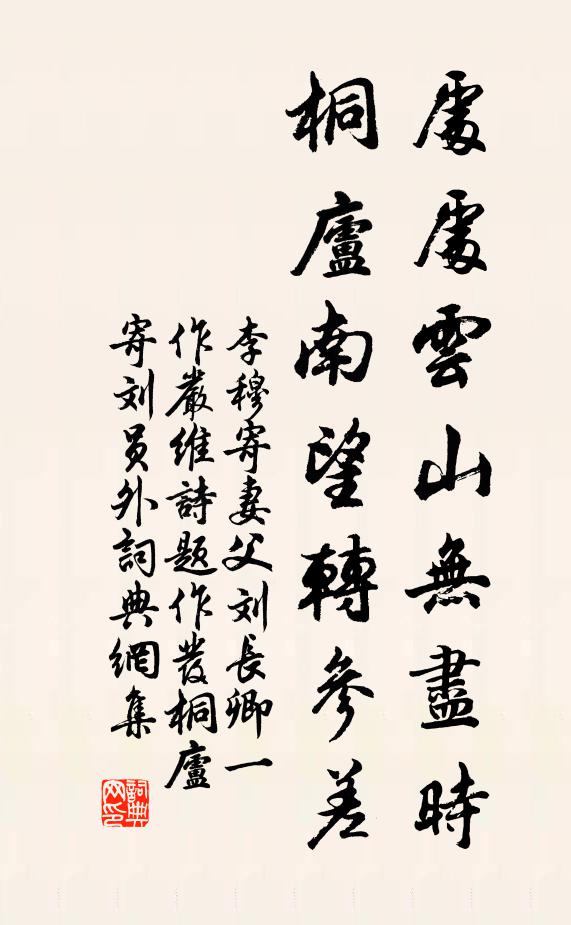 處處雲山無盡時
桐廬南望轉參差
李穆寄妻父刘長卿一
作嚴維詩题作發桐廬
寄刘員外詞典網集
詞典
网印